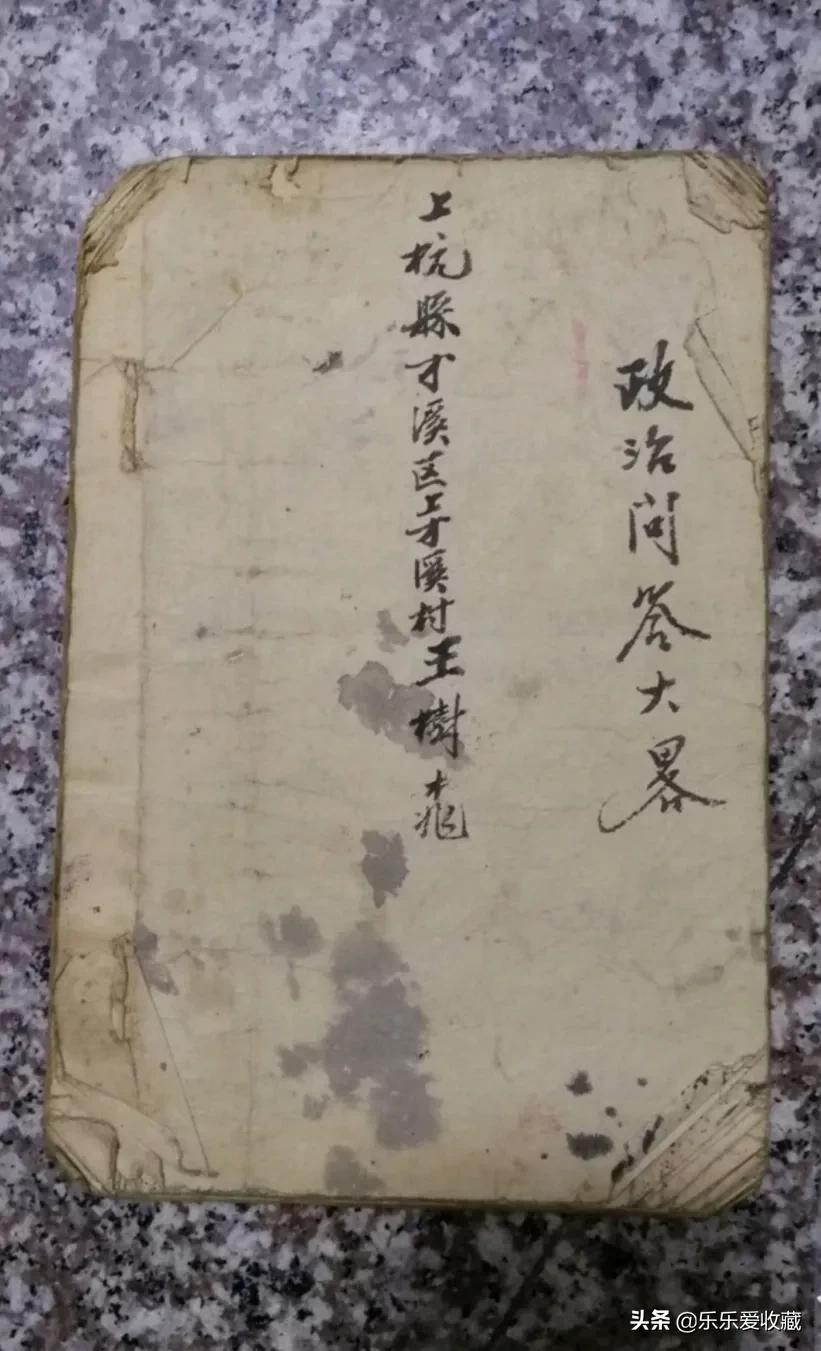 政治问答大畧
上杭縣才溪区上才溪村王樹
头条 @乐乐爱收藏